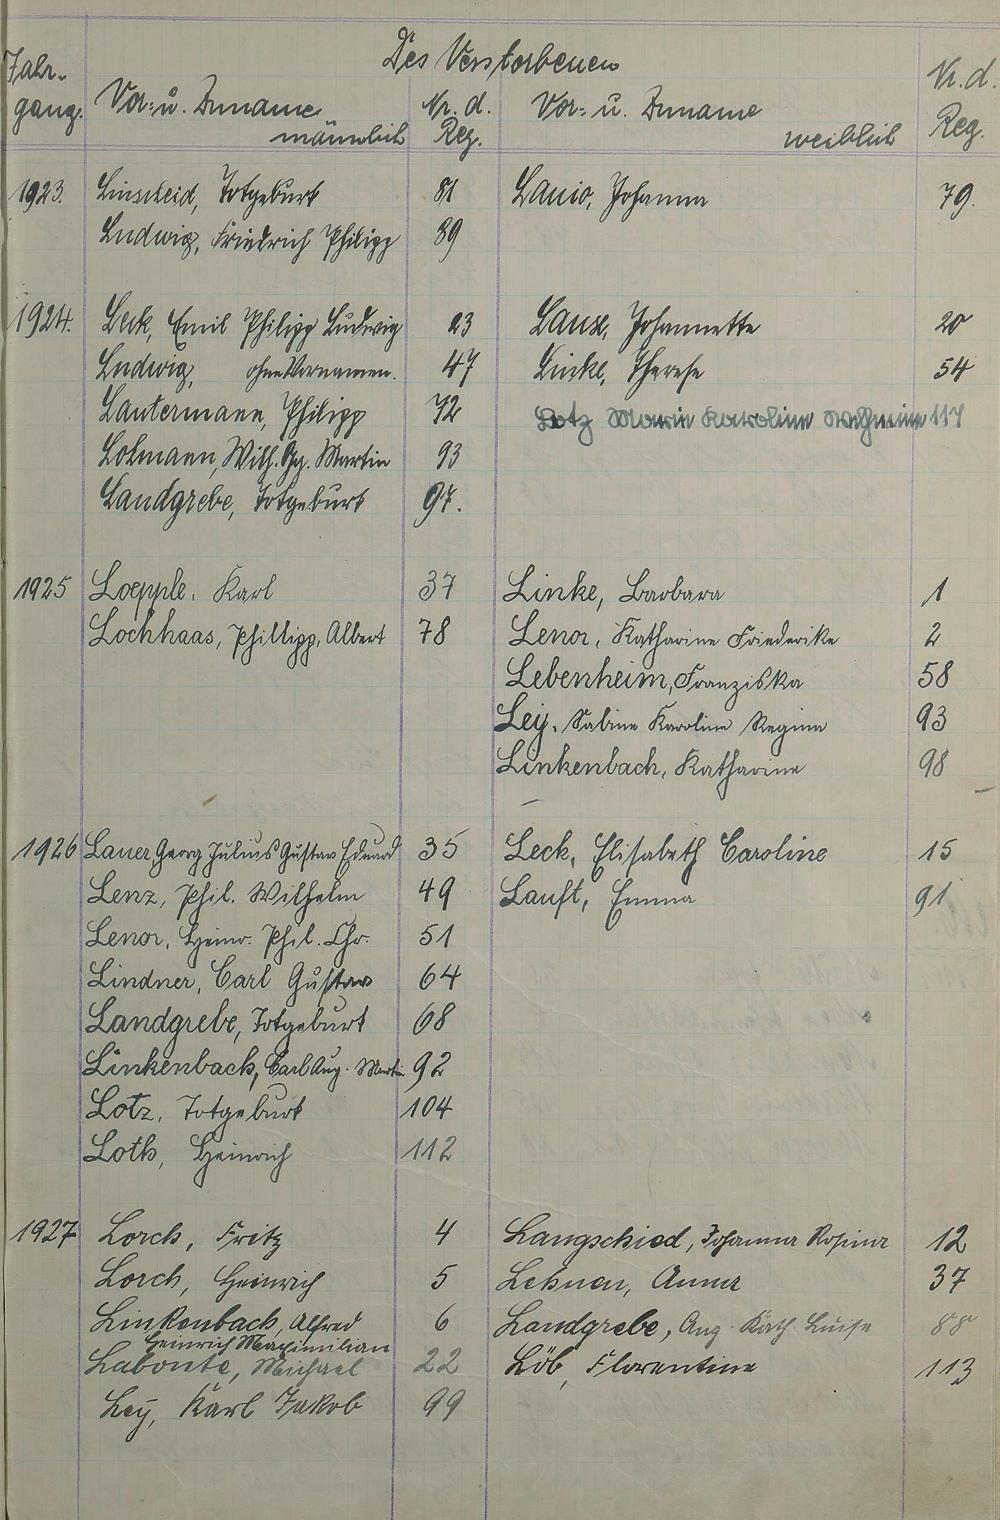 Des Verstorbenen
Jahr-
gang.
Vor- u. Zuname
männlich
Nr. d.
Reg.
Vor- u. Zuname
weiblich
Nr. d.
Reg.
1923. Linscheid, Totgeburt 81 Lanio, Johanna 79.
Ludwig, Friedrich Philipp 89
1924. Leck, Emil Philipp Ludwig 23 Laux, Johannette 20
Ludwig, ohne Vornamen. 47 Linke, Therese 54
Lautermann, Philipp 72 Lotz Marie Karoline Wilhelmine 117
Lohmann, Wilh. Gg. Martin 93
Landgrebe, Totgeburt 97.
1925 Loepple, Karl 37 Linke, Barbara 1
Lochhaas, Phillipp, Albert 78 Lenor, Katharine Friederike 2
Lebenheim, Franziska 58
Ley, Sabine Karoline Regina 93
Linkenbach, Katharine 98
1926 Lauer, Georg Julius Gustav Eduard 35 Leck, Elisabeth Caroline 15
Lenz, Phil. Wilhelm 49 Lauft, Emma 91
Lenor, Heinr. Phil. Chr. 51
Lindner, Carl Gustav 64
Landgrebe, Totgeburt 68
Linkenbach, Carl Aug. Martin 92
Lotz, Totgeburt 104
Loth, Heinrich 112
1927 Lorch, Fritz 4 Langschied, Johanna Rosina 12
Lorch, Heinrich 5 Lehnen, Anna 37
Linkenbach, Alfred 6 Landgrebe, Aug. Kath. Luise 88
Heinrich Maximilian
Labonte, Michael 22 Löb, Florentine 113
Ley, Karl Jakob 99